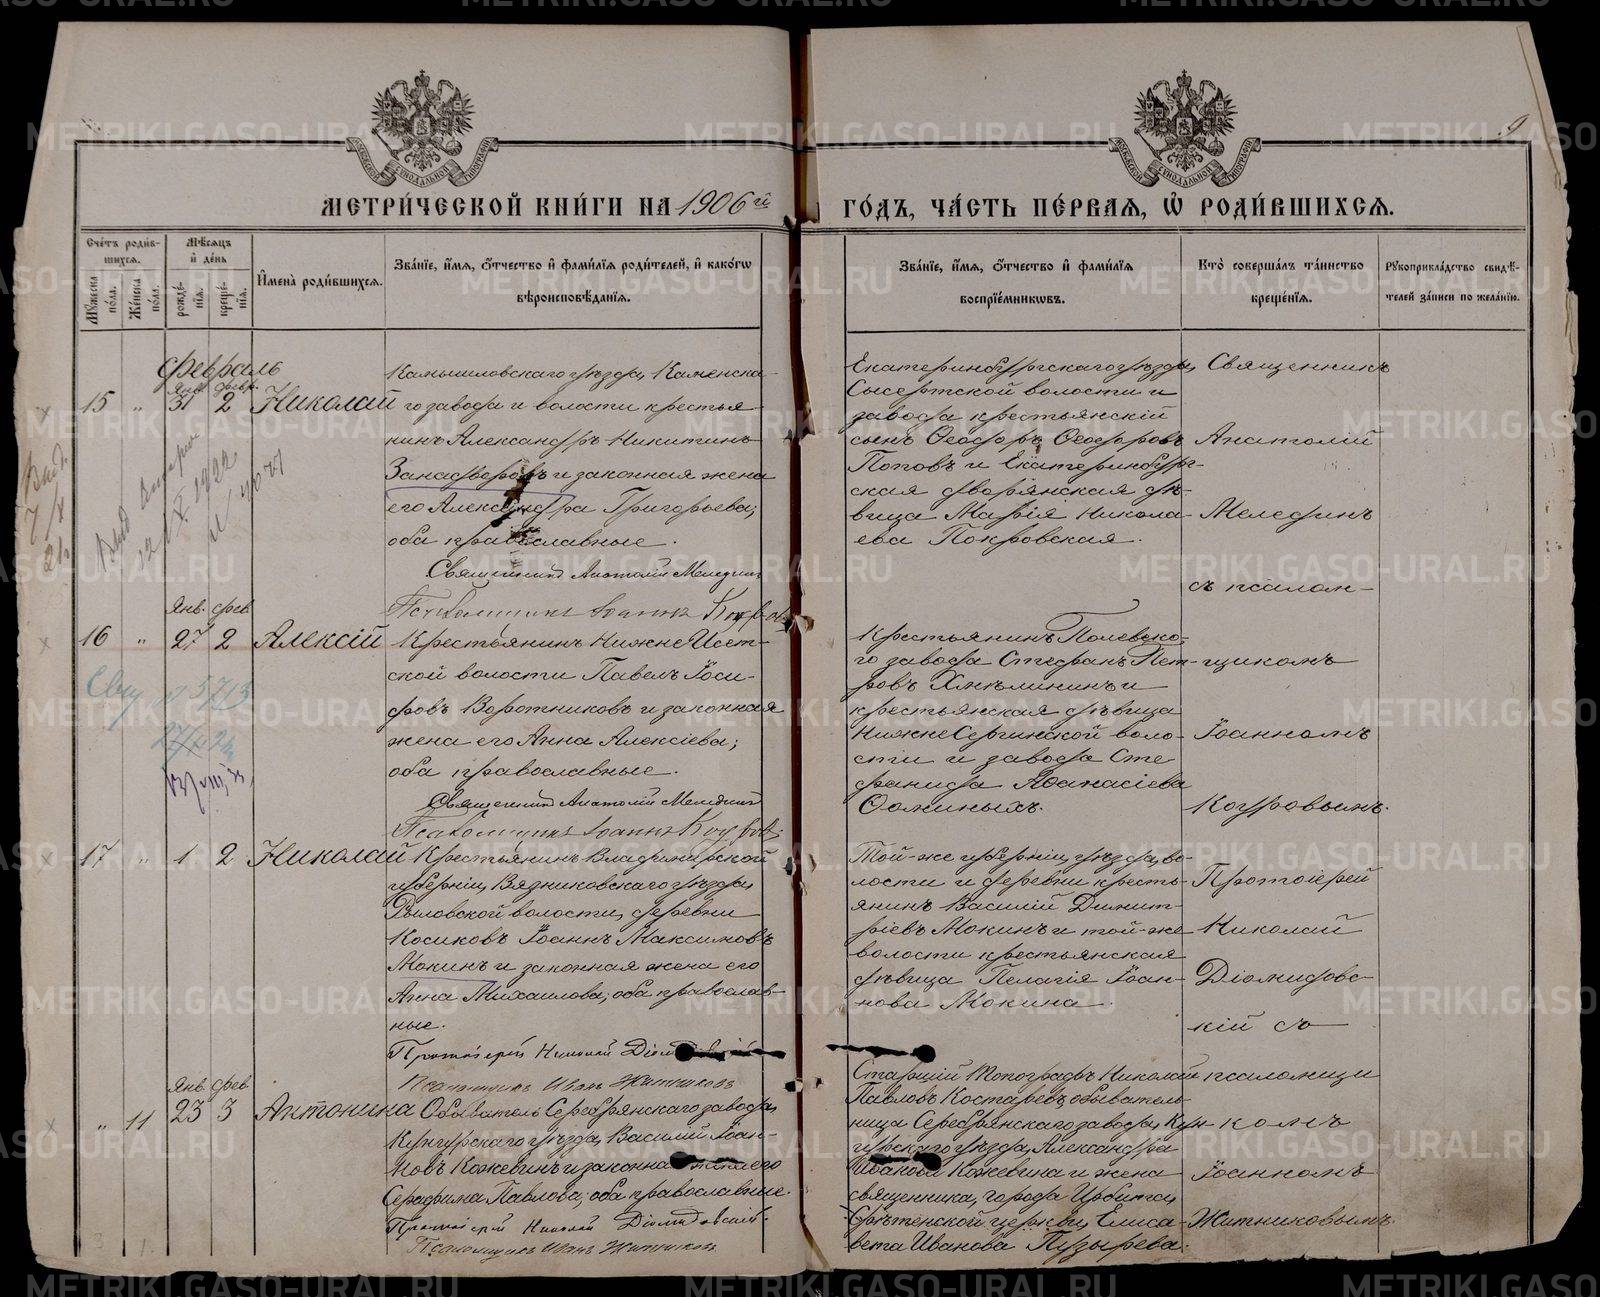 9
МЕТРИ́ЧЕСКОЙ КНИ́ГИ НА 1906 й ГО́ДЪ, ЧА́СТЬ ПЕ́РВАѦ, Ѡ РОДИ́ВШИХСѦ.
Сче́тъ роди́вшихсѧ.
Мꙋ́жеска по́ла.
Же́нска по́ла.
Мѣ́сѧцъ и҆ де́нь
рожде́нїѧ.
креще́нїѧ.
И҆мена̀ роди́вшихсѧ.
Зва́нїе, и҆́мѧ, ѻ҆́тчество и҆ фами́лїѧ роди́телей, и҆ како́гѡ
вѣроисповѣ́данїѧ.
Зва́нїе, и҆́мѧ, ѻ҆́тчество и҆ фами́лїѧ
воспрїе́мникѡвъ.
Кто̀ соверша́лъ та́инство
креще́нїѧ.
Рꙋкоприкла́дство свидѣ́-
телей за́писи по жела́нїю.
Февраль
15 " Янв. 31 февр. 2 Николай
Камышловскаго уѣзда, Каменска-
го завода и волости крестья-
нинъ Александръ Никитинъ
Занадворовъ и законная жена
его Александра Григорьева;
оба православные.
Священникъ Анатолій Мелединъ
Псаломщикъ Іоаннъ Кодровъ
Екатеринбургскаго уѣзда,
Сысертской волости и
завода крестьянскій
сынъ Ѳеодоръ Ѳеодоровъ
Поповъ и Екатеринбург-
ская дворянская дѣ-
вица Марія Никола-
ева Покровская.
Священникъ
Анатолій
Мелединъ
съ псалом-
16 " Янв. 27 фев. 2 Алексій
Крестьянинъ Нижне Исет-
ской волости Павелъ Іоси-
фовъ Воротниковъ и законная
жена его Анна Алексіева;
оба православные.
Священникъ Анатолій Мелединъ
Псаломщикъ Іоаннъ Кодровъ
Крестьянинъ Полевско-
го завода Стефанъ Пет-
ровъ Хмѣлининъ и
крестьянская дѣвица
Нижне Сергинской воло-
сти и завода Сте
фанида Аѳанасіева
Ѳоминыхъ.
щикомъ
Іоанномъ
Кодровымъ.
17 " 1 2 Николай
Крестьянинъ Владимірской
губерніи, Вязниковскаго уѣзда,
Рыловской волости, деревни
Косиковъ Іоаннъ Максимовъ
Мокинъ и законная жена его
Анна Михаилова; оба православ-
ные.
Протоіерей Николай
Псаломщикъ Иванъ Житниковъ
Той-же губерніи, уѣзда, во-
лости и деревни кресть-
янинъ Василій Димит-
ріевъ Мокинъ и той-же
волости крестьянская
дѣвица Пелагія Іоан-
нова Мокина.
Протоіерей
Николай
Діомидовс-
кій съ
" 11 Янв. 23 фев. 3 Антонина
Обыватель Серебрянскаго завода,
Кунгурскаго уѣзда, Василій Іоан-
новъ Кожевинъ и законна его
Серафима Павлова; оба православные.
Протоіерей Николай Діомидовскій.
Псаломщикъ Иванъ Житниковъ
Старшій Топографъ Николай
Павловъ Костаревъ, обыватель-
ница Серебрянскаго завода, Кун-
гурскаго уѣзда, Александра
Иванова Кожевина и жена
священника, города Ирбита,
Срѣтенской церкви, Елиса-
вета Иванова Пузырева.
псаломщи
комъ
Іоанномъ
Житниковымъ.
METRIKI.GASO-URAL.RU